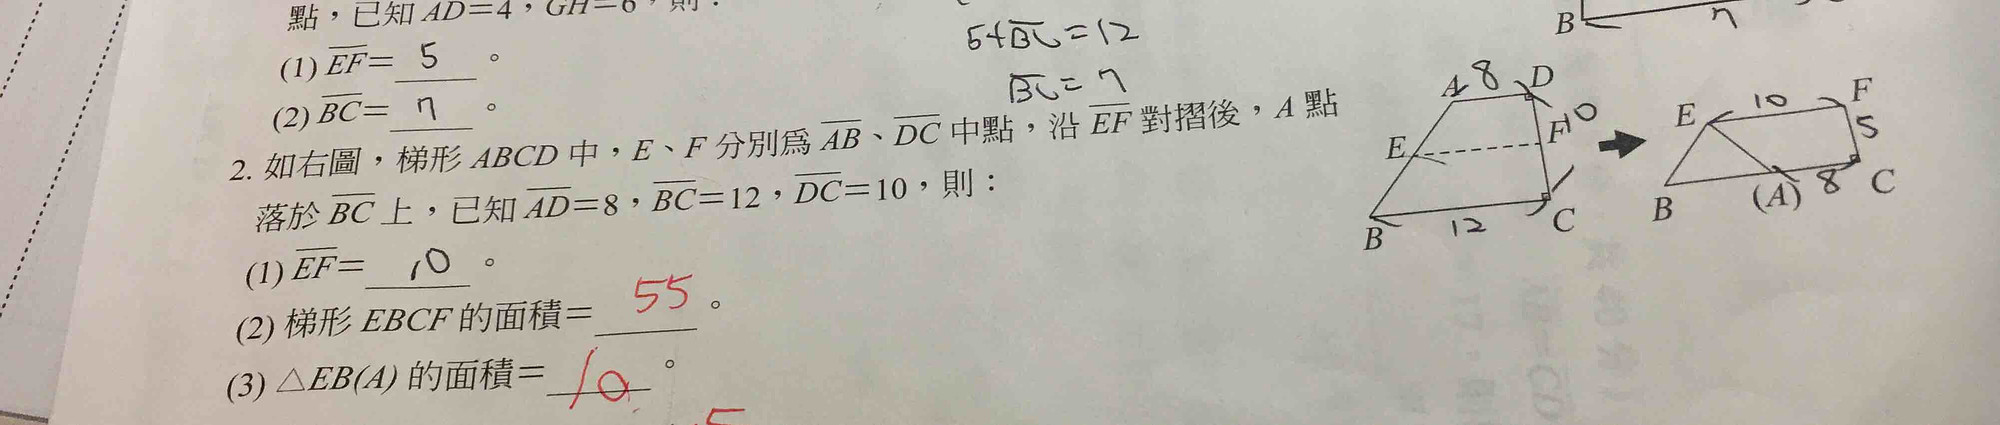 點，已知 AD=4，GH=6，則：
(1) EF= 5 。
(2) BC= 7 。
5+BC=12
BC=7
B 7
2. 如右圖，梯形 ABCD 中，E、F 分別為 AB、DC 中點，沿 EF 對摺後，A 點
落於 BC 上，已知 AD=8，BC=12，DC=10，則：
(1) EF= 10 。
(2) 梯形 EBCF 的面積= 55 。
(3) △EB(A) 的面積= 10 。
A 8 D
E F 10
B 12 C
E 10 F
5
B (A) 8 C